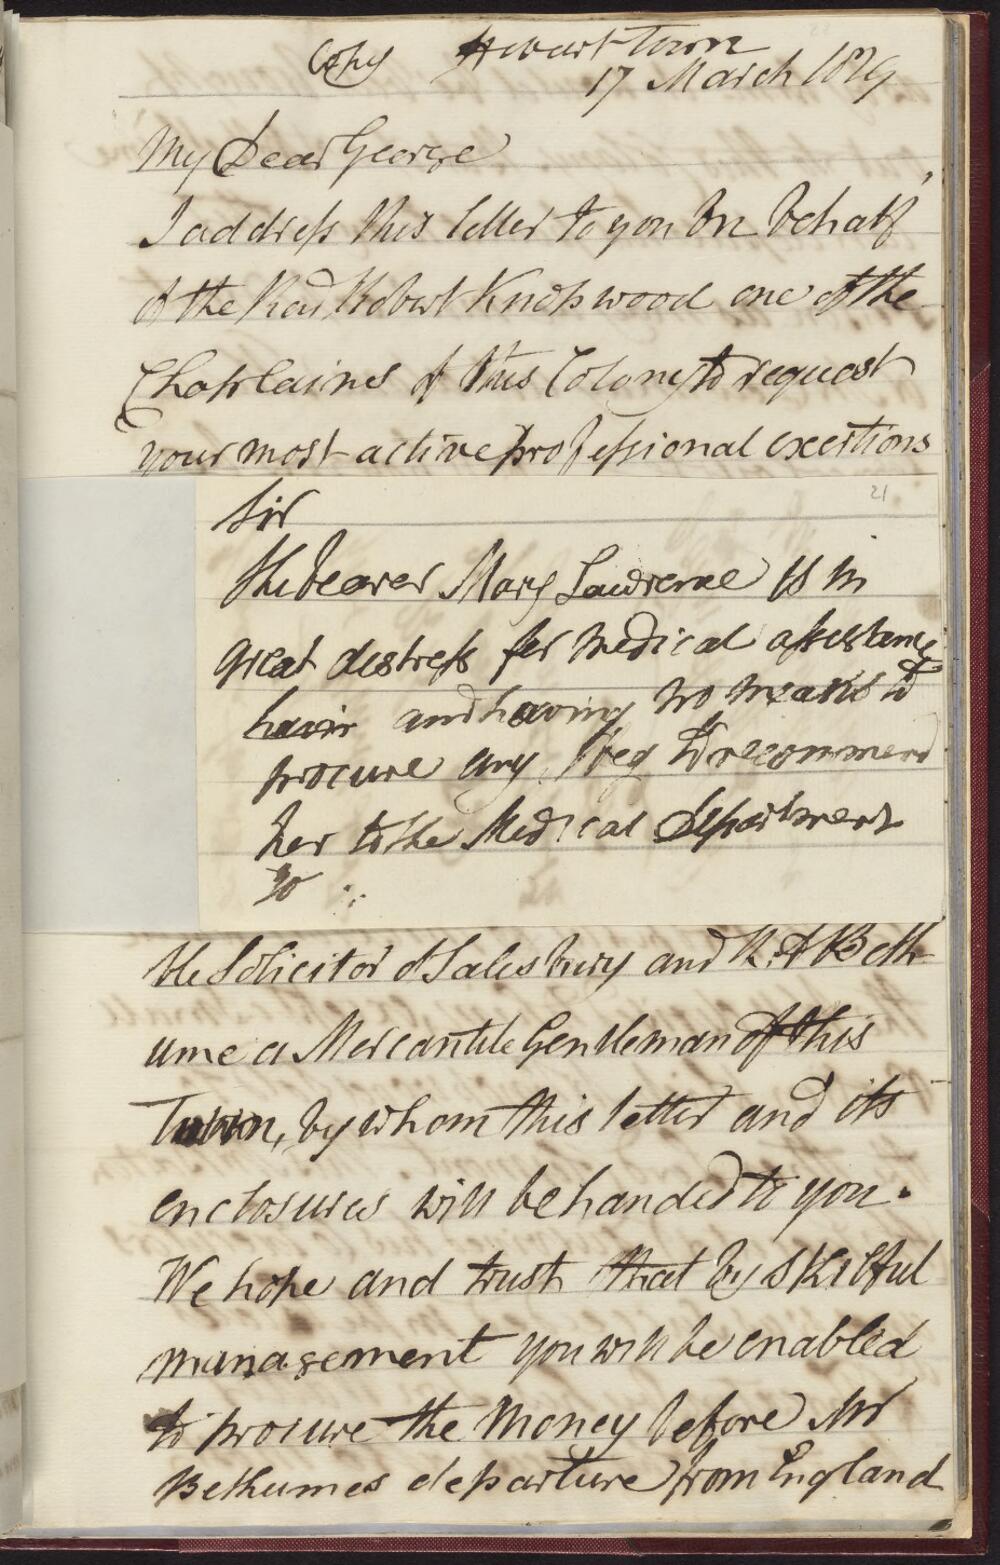 Copy Hobart Town
17 March 1829
My Dear George
I address this letter to you on behalf
of the Revd Robert Knopwood one of the
Chaplains of this Colony to request
your most active professional exertions
21
Sir
the bearer Mary Lawrence is in
great distress for medical assistance
havin and having no means to
procure any, I beg to recommend
her to the Medical department
to
the Solicitor of Salesbury and R. A Beth-
ume a Mercantile Gentleman of this
Town, by whom this letter and its
enclosures will be handed to you.
We hope and trust that by skilful
management you will be enabled
to procure the money before Mr
Bethumes departure from England